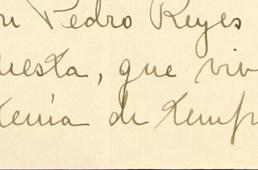 Pedro Reyes
uesta, que viv
tenía de tempr